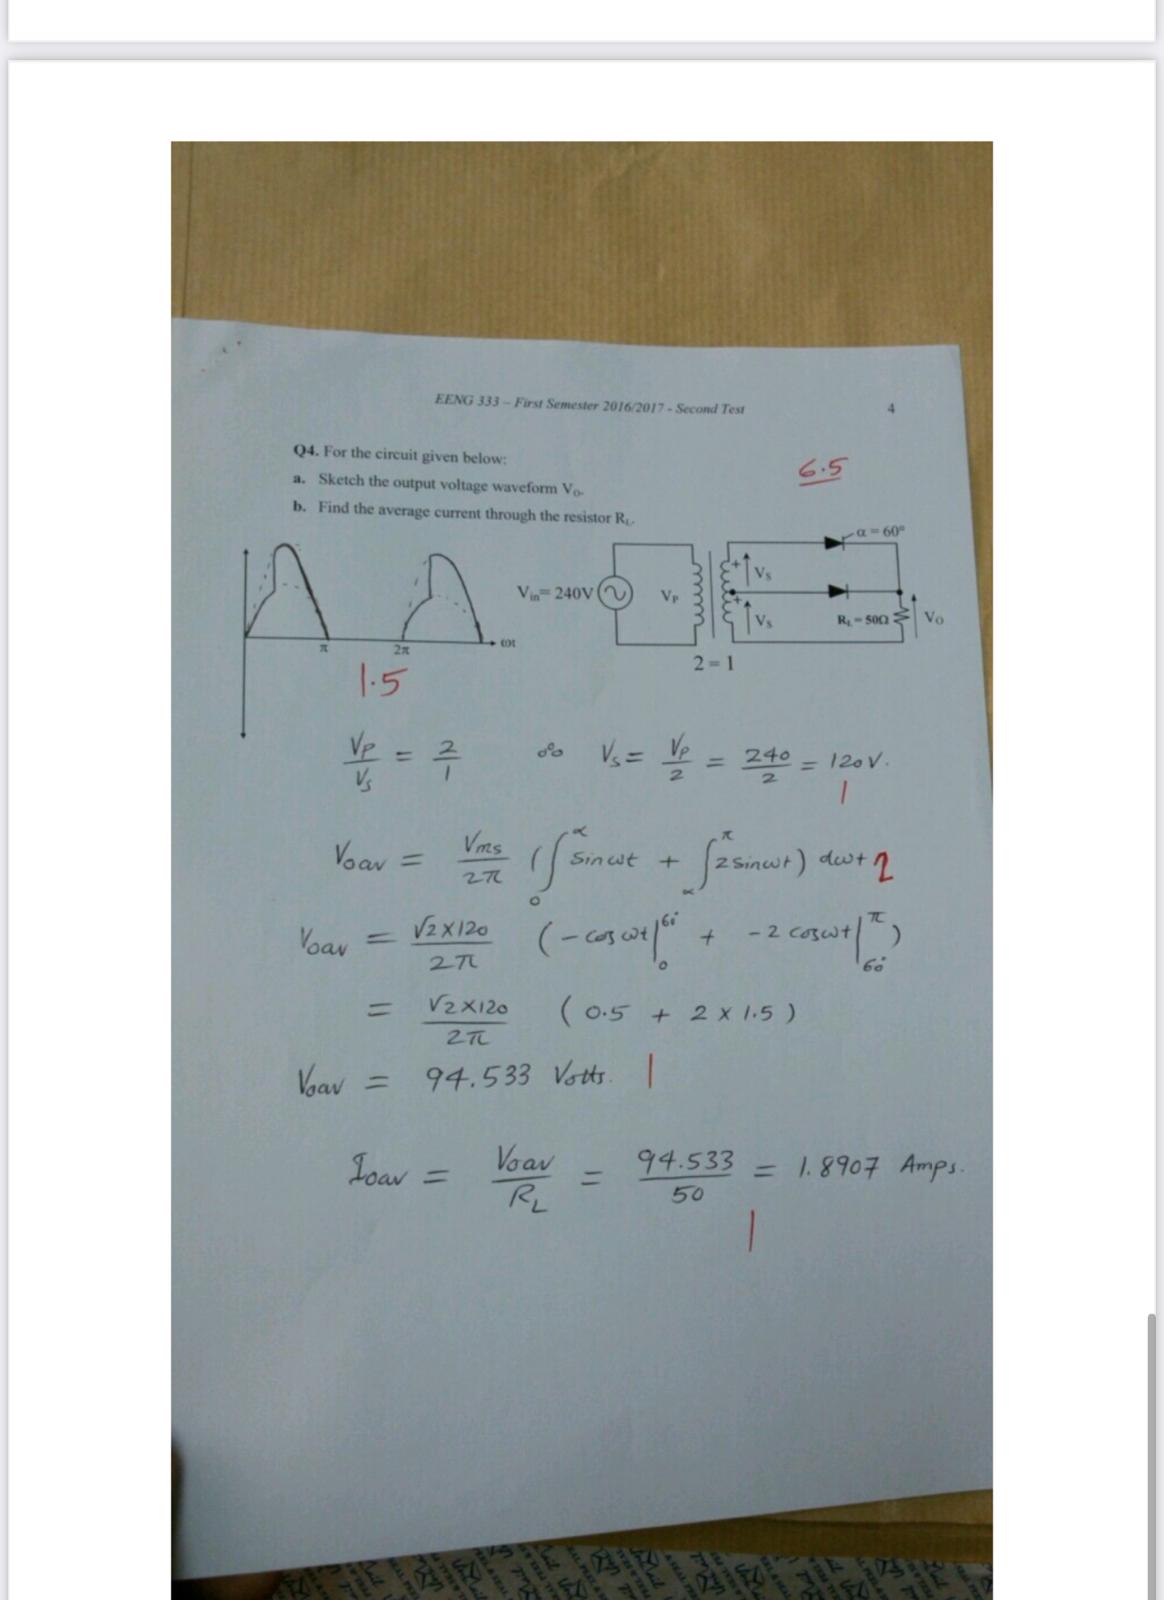 EENG 333 – First Semester 2016/2017 - Second Test 4
Q4. For the circuit given below:
6.5
a. Sketch the output voltage waveform Vo.
b. Find the average current through the resistor RL.
α = 60°
Vs
Vin= 240V
VP
Vs
RL = 50Ω
Vo
π 2π ωt
2 = 1
1.5
VP/Vs = 2/1 ∴ Vs = VP/2 = 240/2 = 120V.
1
Voav = Vms/2π (∫0^α sinωt + ∫α^π 2sinωt) dωt 2
Voav = √2x120/2π (-cosωt|0^60° + -2cosωt|60°^π)
= √2x120/2π (0.5 + 2 x 1.5)
Voav = 94.533 Volts. 1
Ioav = Voav/RL = 94.533/50 = 1.8907 Amps.
1